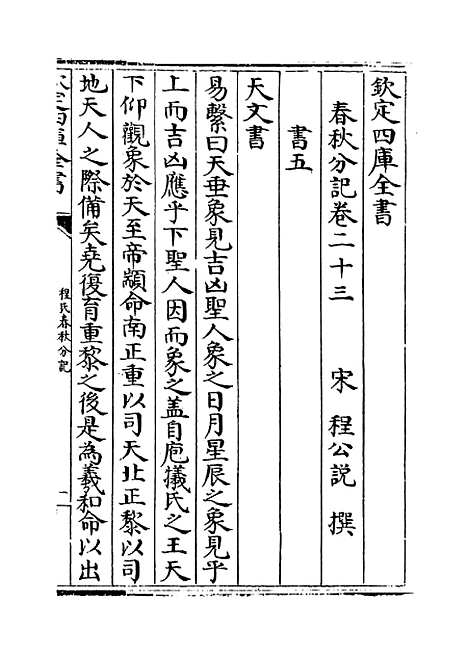 欽定四庫全書
春秋分記卷二十三　宋　程公說　撰
書五
天文書
易繫曰天垂象見吉凶聖人象之日月星辰之象見乎
上而吉凶應乎下聖人因而象之蓋自庖犠氏之王天
下仰觀象於天至帝顓命南正重以司天北正黎以司
地天人之際備矣堯復育重黎之後是為羲和命以出
程氏春秋分記